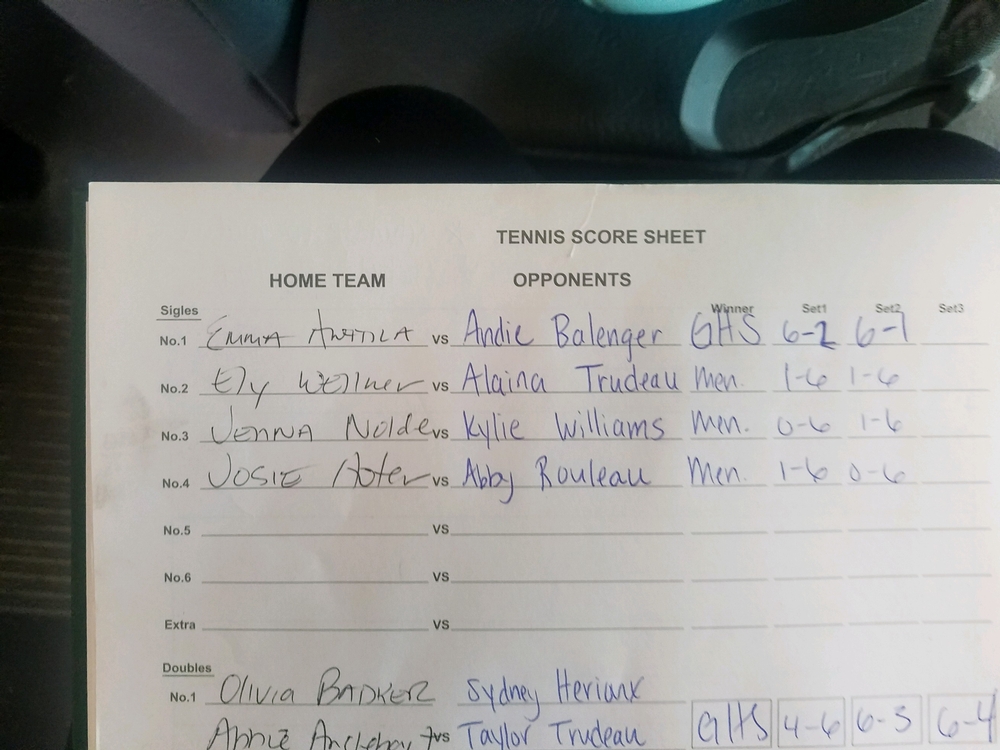 TENNIS SCORE SHEET
HOME TEAM OPPONENTS
Sigles Winner Set1 Set2 Set3
No.1 EMMA vs Andie Balenger GHS 6-2 6-1
No.2 Ely Wellner vs Alaina Trudeau Men. 1-6 1-6
No.3 JENNA Nolde vs Kylie Williams Men. 0-6 1-6
No.4 JOSIE vs Abby Rouleau Men. 1-6 0-6
No.5 vs
No.6 vs
Extra vs
Doubles
No.1 OLIVIA Sydney
vs Taylor Trudeau GHS 4-6 6-3 6-4